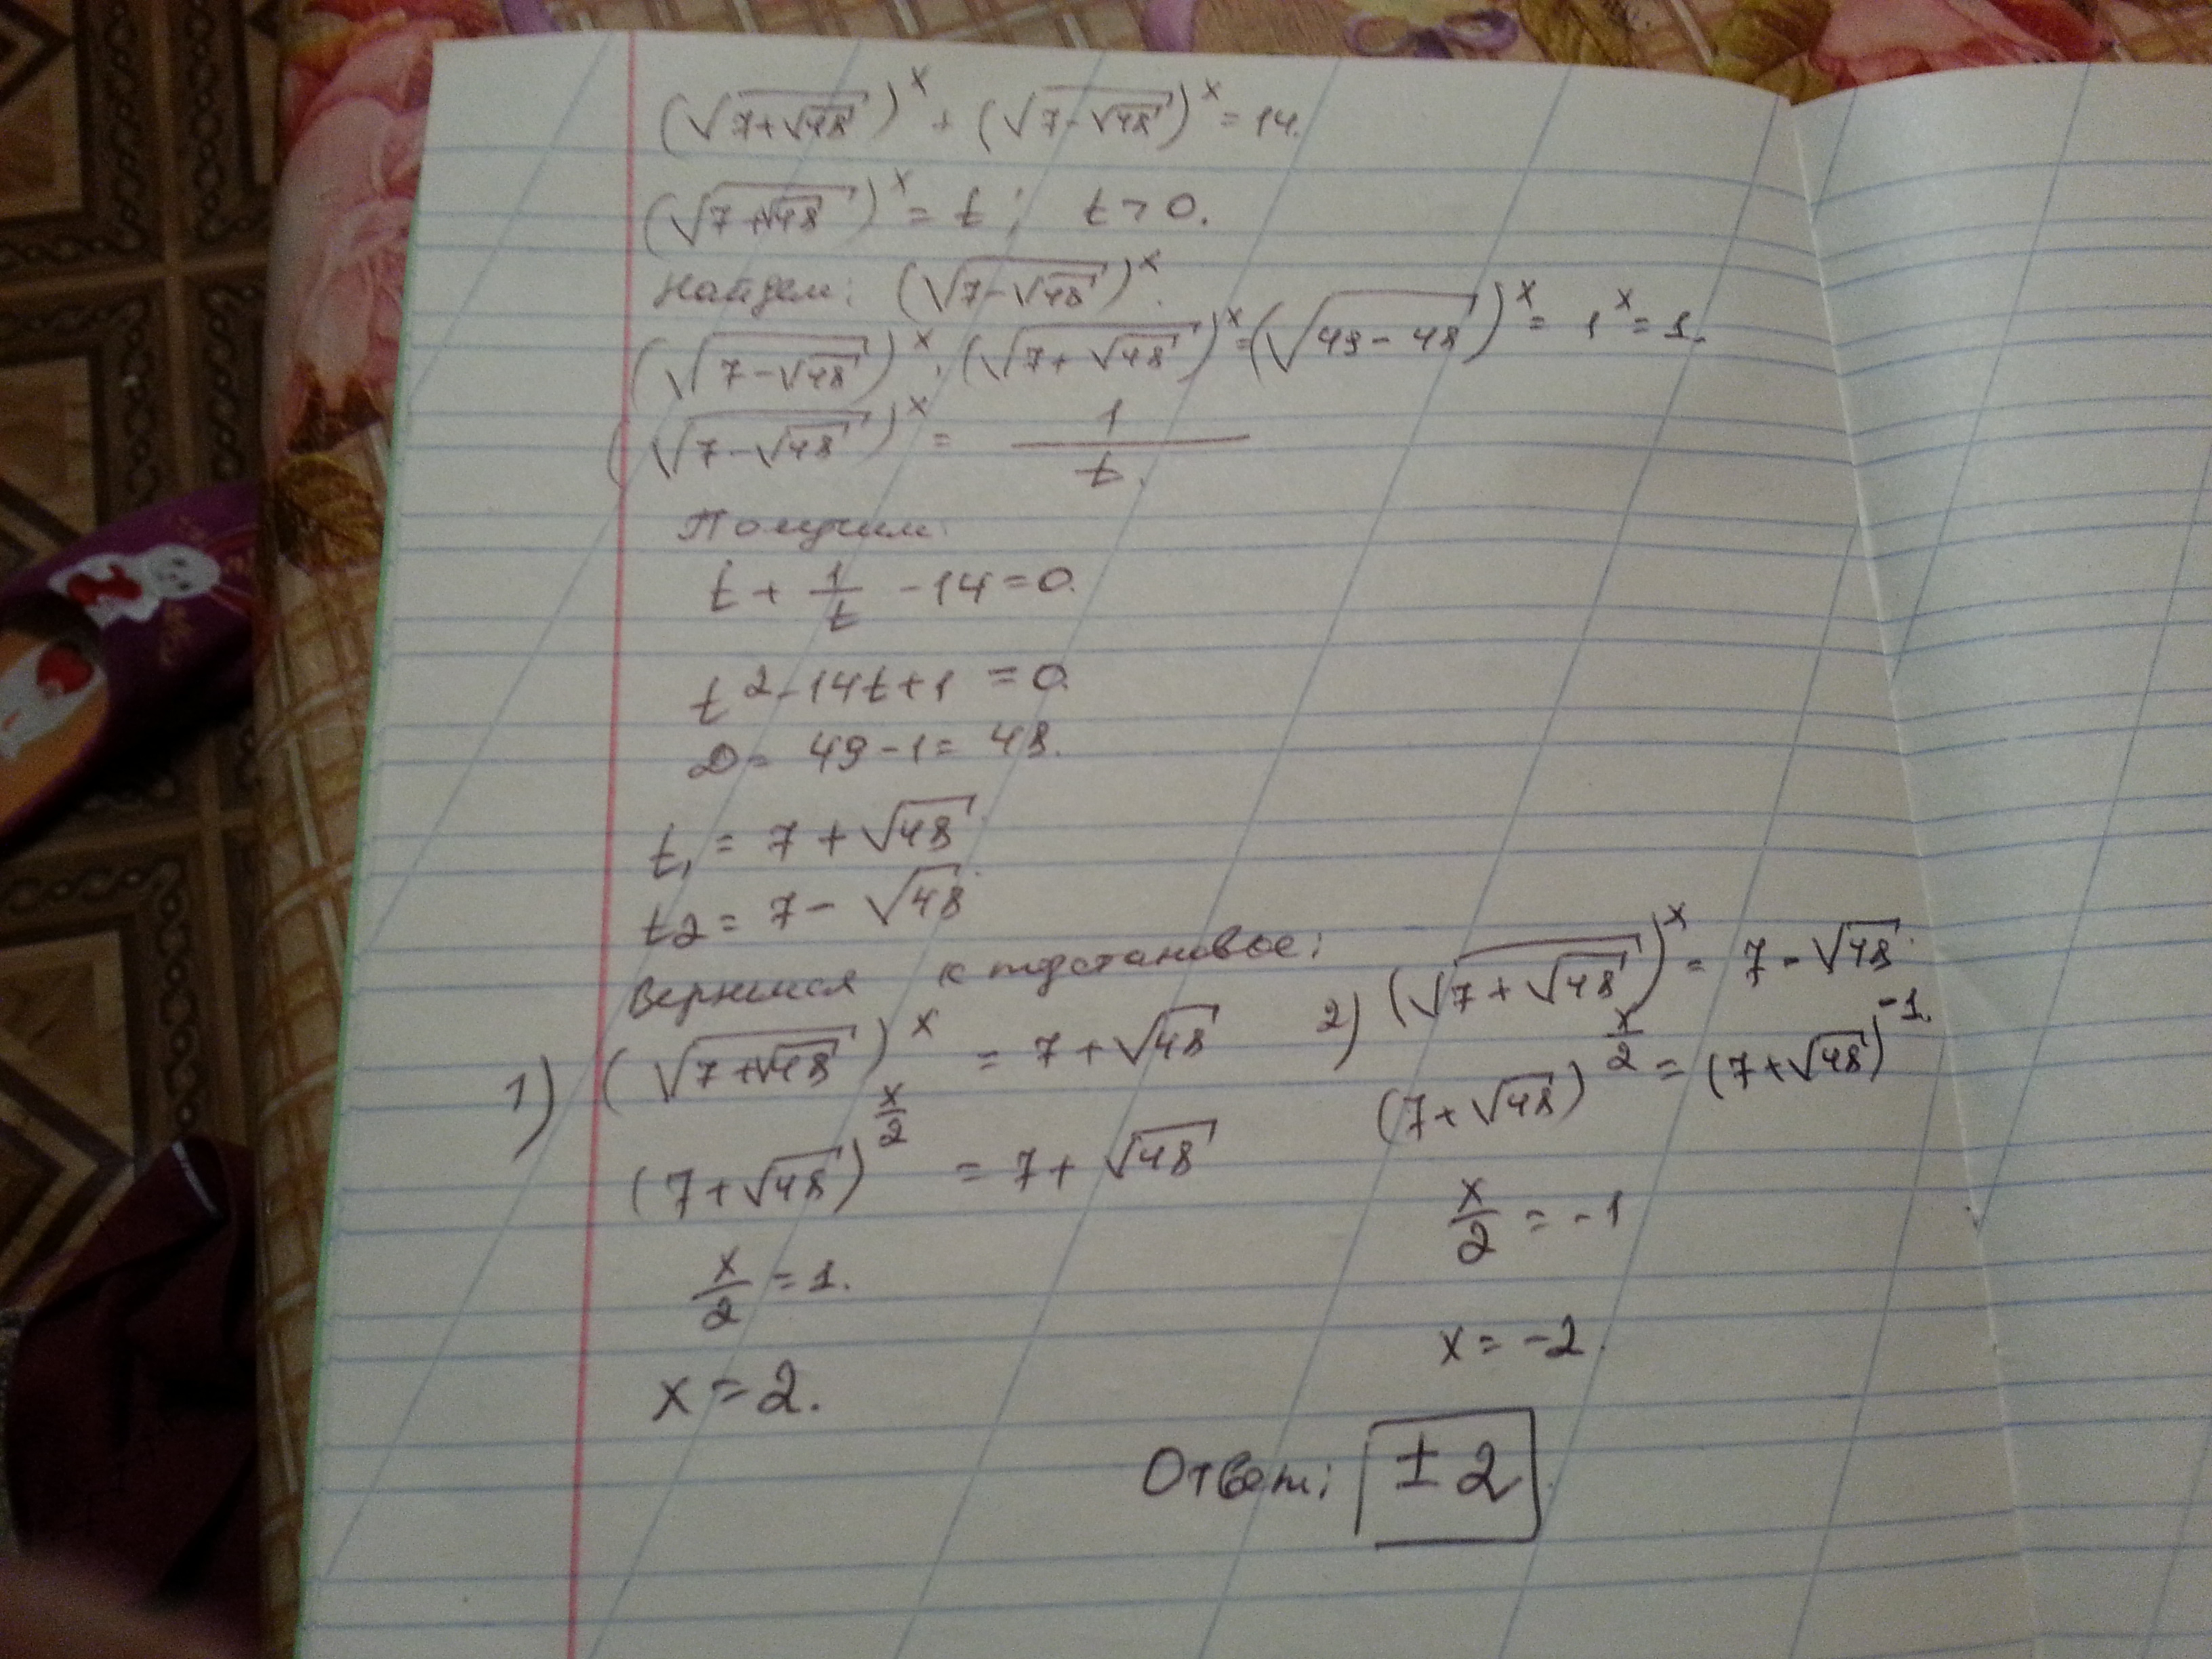 (√(7+√48))^x + (√(7-√48))^x = 14.
(√(7+√48))^x = t; t > 0.
Найдем: (√(7-√48))^x.
(√(7-√48))^x · (√(7+√48))^x = (√(49-48))^x = 1^x = 1.
(√(7-√48))^x = 1/t.
Получим:
t + 1/t - 14 = 0.
t^2 - 14t + 1 = 0.
D = 49 - 1 = 48.
t1 = 7 + √48
t2 = 7 - √48
Вернемся к подстановке:
1) (√(7+√48))^x = 7 + √48
(7+√48)^(x/2) = 7 + √48
x/2 = 1.
x = 2.
2) (√(7+√48))^x = 7 - √48
(7+√48)^(x/2) = (7+√48)^(-1).
x/2 = -1
x = -2.
Ответ: ±2